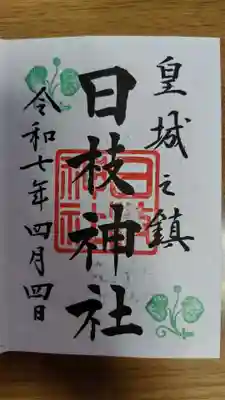 皇城之鎮
日枝神社
令和七年四月四日
日枝神社